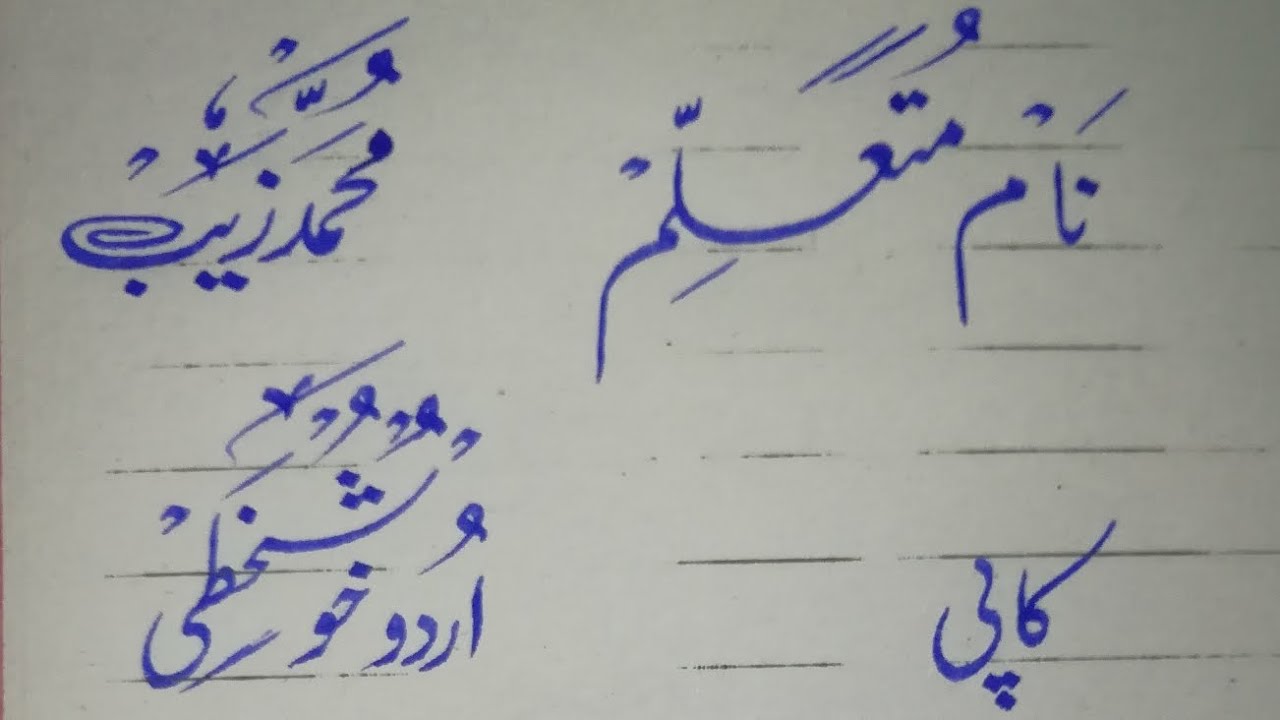 نَامْ مُتَعَلِّمْ مُحَمَّدْ زَیبْ
کاپی اُردو خوشخطی